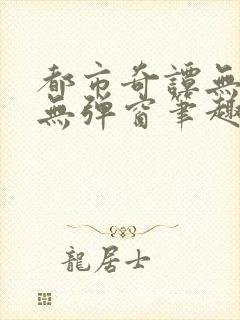 都市奇譚無
無彈窗筆趣
龍居士